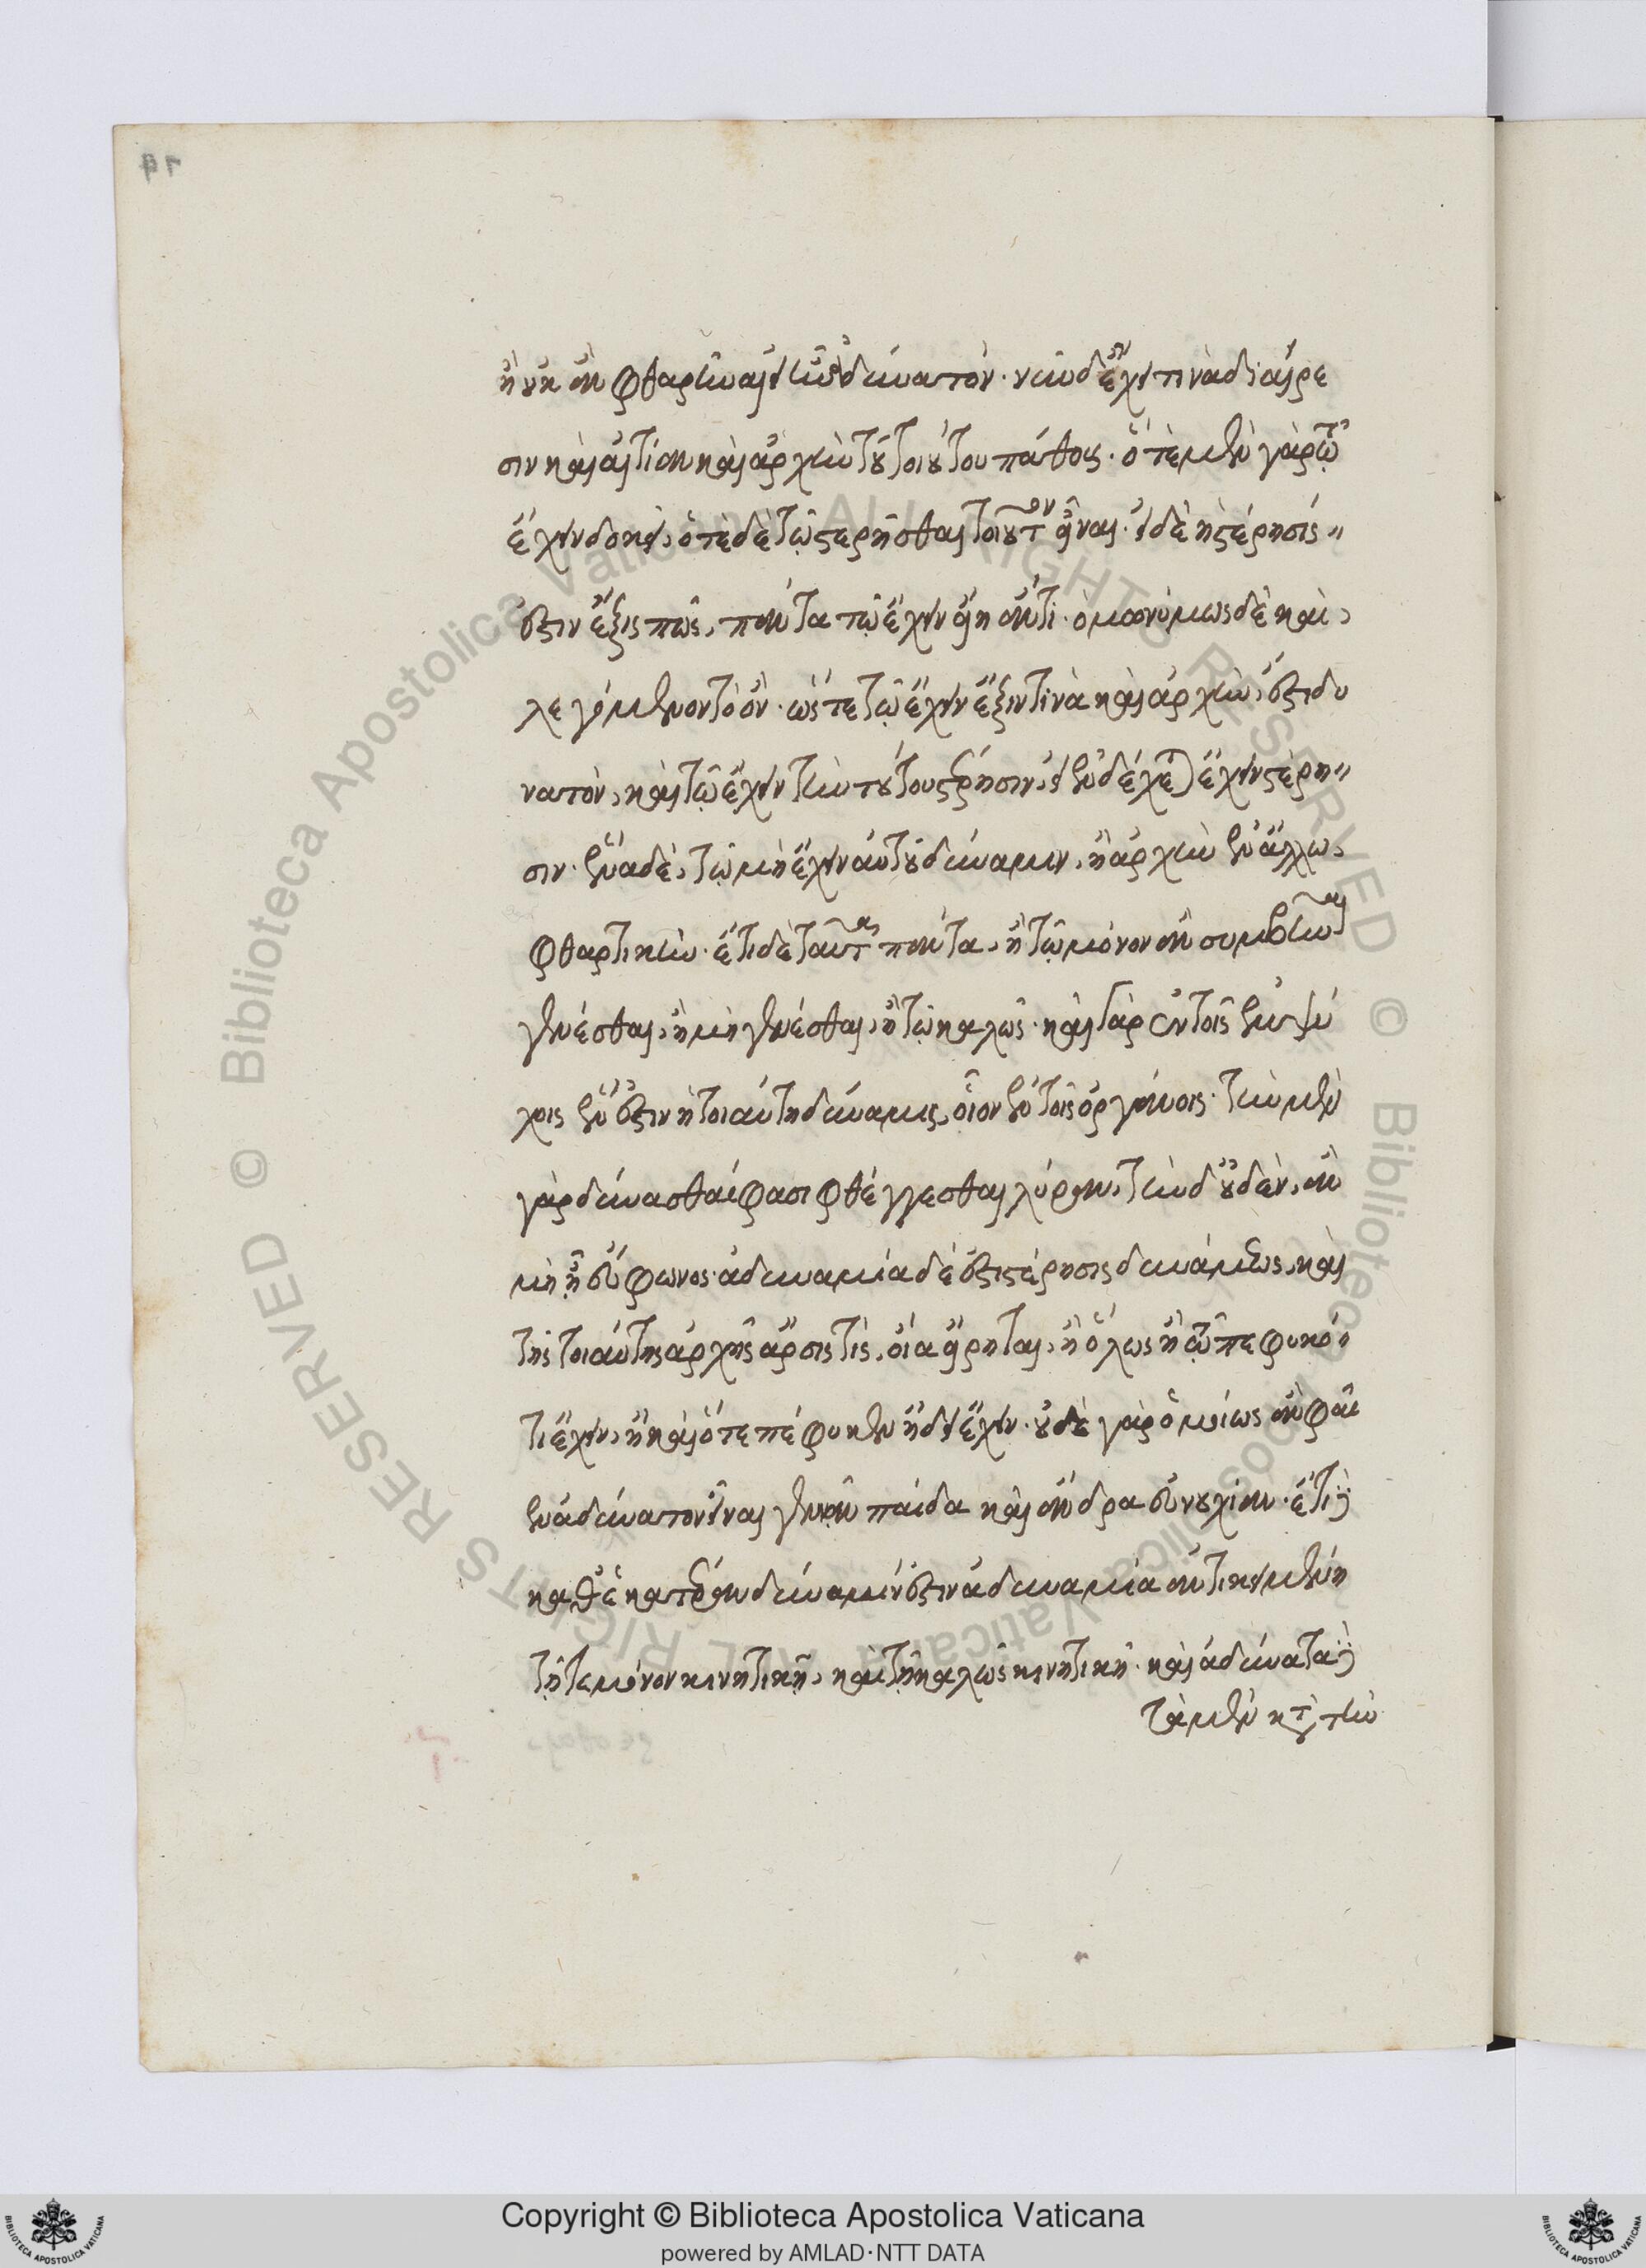 ἢ οὐκ ἂν φθαρῆναι εἰ ἦν ἀδύνατον· νῦν δ' ἔχει τινὰ διάθε
σιν καὶ αἰτίαν καὶ ἀρχὴν τοῦ τοιούτου πάθους. ὁτὲ μὲν γὰρ τῷ
ἔχειν δοκεῖ, ὁτὲ δὲ τῷ ἐστερῆσθαι τοιοῦτον εἶναι. εἰ δὲ ἡ στέρησίς
ἐστιν ἕξις πως, πάντα τῷ ἔχειν ἂν εἴη τι. ὁμωνύμως δὲ καὶ
λεγόμενον τὸ ὄν. ὥστε τῷ ἔχειν ἕξιν τινὰ καὶ ἀρχὴν, ἐστὶ δυ
νατὸν, καὶ τῷ ἔχειν τὴν τούτου στέρησιν, εἰ ἐνδέχεται ἔχειν στέρη
σιν. ἕνα δὲ, τῷ μὴ ἔχειν αὐτοῦ δύναμιν, ἢ ἀρχὴν ἐν ἄλλῳ,
φθαρτικήν. ἔτι δὲ ταῦτα πάντα, ἢ τῷ μόνον ἂν συμβῆναι
γενέσθαι, ἢ μὴ γενέσθαι, ἢ τῷ καλῶς. καὶ γὰρ ἐν τοῖς ἀψύ
χοις ἔνεστιν ἡ τοιαύτη δύναμις, οἷον ἐν τοῖς ὀργάνοις. τὴν μὲν
γὰρ δύνασθαί φασι φθέγγεσθαι λύραν, τὴν δ' οὐδὲν, ἂν
μὴ ᾖ εὔφωνος. ἀδυναμία δέ ἐστι στέρησις δυνάμεως, καὶ
τῆς τοιαύτης ἀρχῆς ἄρσις τὶς, οἵα εἴρηται, ἢ ὅλως ἢ τῷ πεφυκό
τι ἔχειν, ἢ καὶ ὅτε πέφυκεν ἤδη ἔχειν. οὐδὲ γὰρ ὁμοίως ἂν φαῖ
εν ἀδύνατον εἶναι γεννᾶν παῖδα καὶ ἄνδρα εὐνουχίαν. ἔτι δὲ
καθ' ἑκατέραν δύναμίν ἐστιν ἀδυναμία ἀντικειμένη
τῇ τε μόνον κινητικῇ, καὶ τῇ καλῶς κινητικῇ. καὶ ἀδύνατα δὲ
τὰ μὲν κατὰ τὴν